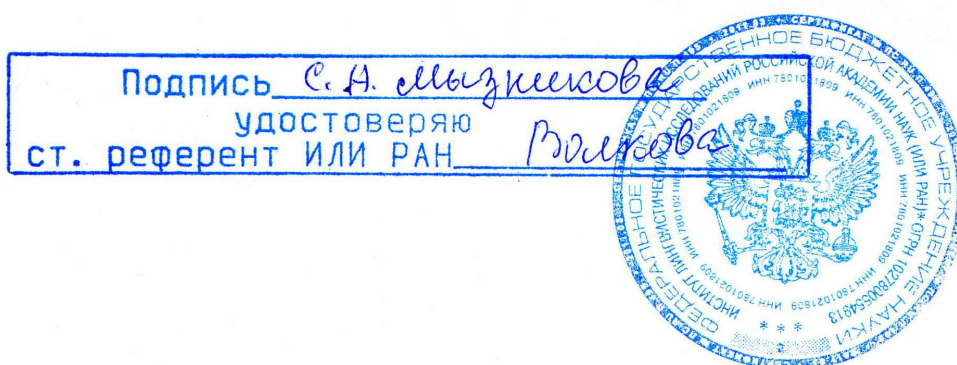 Подпись С. А. Мызникова
удостоверяю
ст. референт ИЛИ РАН Волкова
ФЕДЕРАЛЬНОЕ ГОСУДАРСТВЕННОЕ БЮДЖЕТНОЕ УЧРЕЖДЕНИЕ НАУКИ
ИНСТИТУТ ЛИНГВИСТИЧЕСКИХ ИССЛЕДОВАНИЙ РОССИЙСКОЙ АКАДЕМИИ НАУК (ИЛИ РАН)* ОГРН 1027800554913
ИНН 7801021809 ИНН 7801021809 ИНН 7801021809 ИНН 7801021809 ИНН 7801021809 ИНН 7801021809
* * *
2